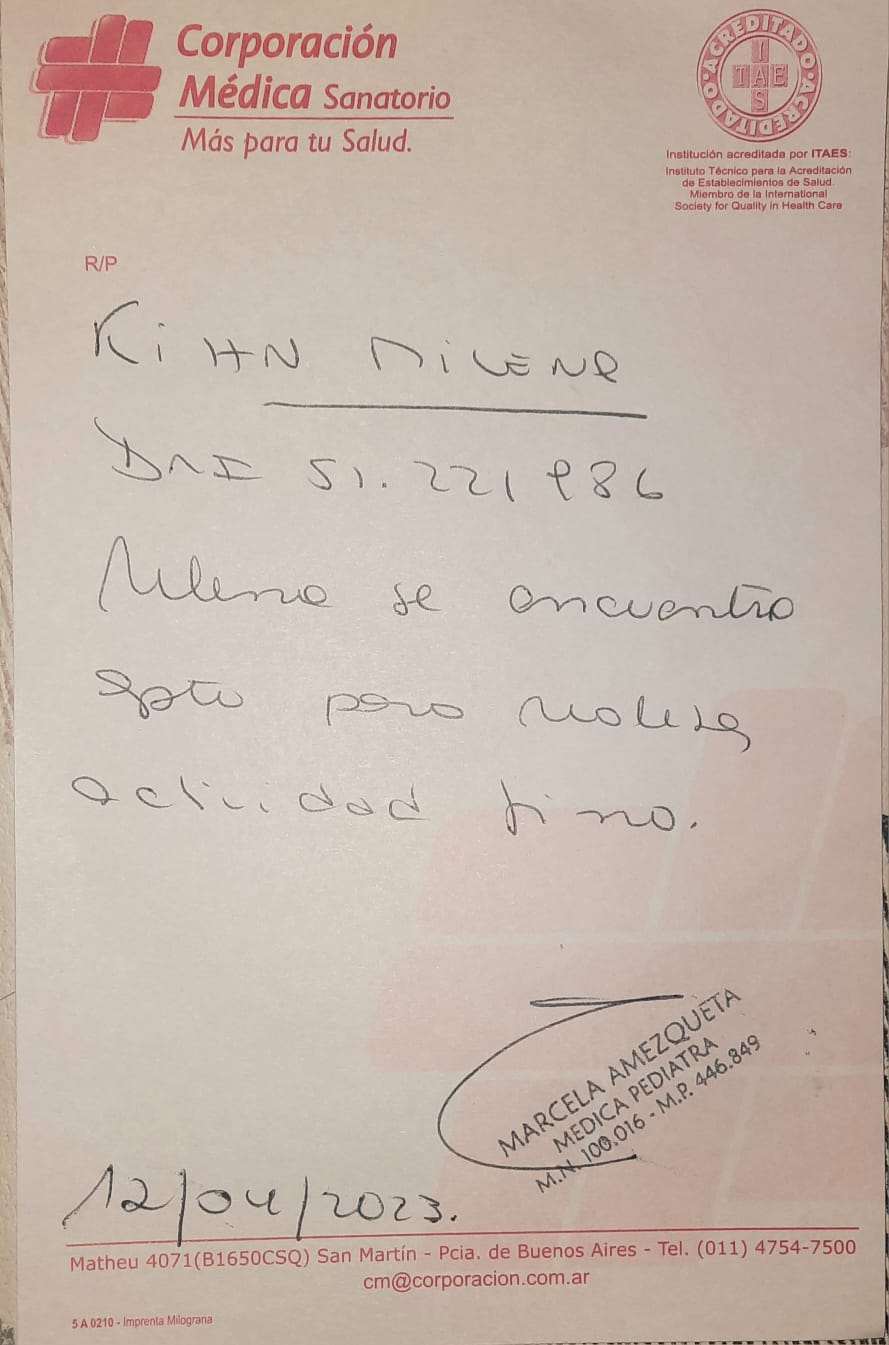 Corporación
Médica Sanatorio
Más para tu Salud.
ACREDITADO · ACREDITADO
ITAES
Institución acreditada por ITAES:
Instituto Técnico para la Acreditación
de Establecimientos de Salud.
Miembro de la International
Society for Quality in Health Care
R/P
KiHN MiLENA
DNI 51.221986
Milena se encuentra
apta para realizar
actividad física.
MARCELA AMEZQUETA
MEDICA PEDIATRA
M.N. 100.016 - M.P. 446.849
12/04/2023.
Matheu 4071(B1650CSQ) San Martín - Pcia. de Buenos Aires - Tel. (011) 4754-7500
cm@corporacion.com.ar
5 A 0210 - Imprenta Milograna